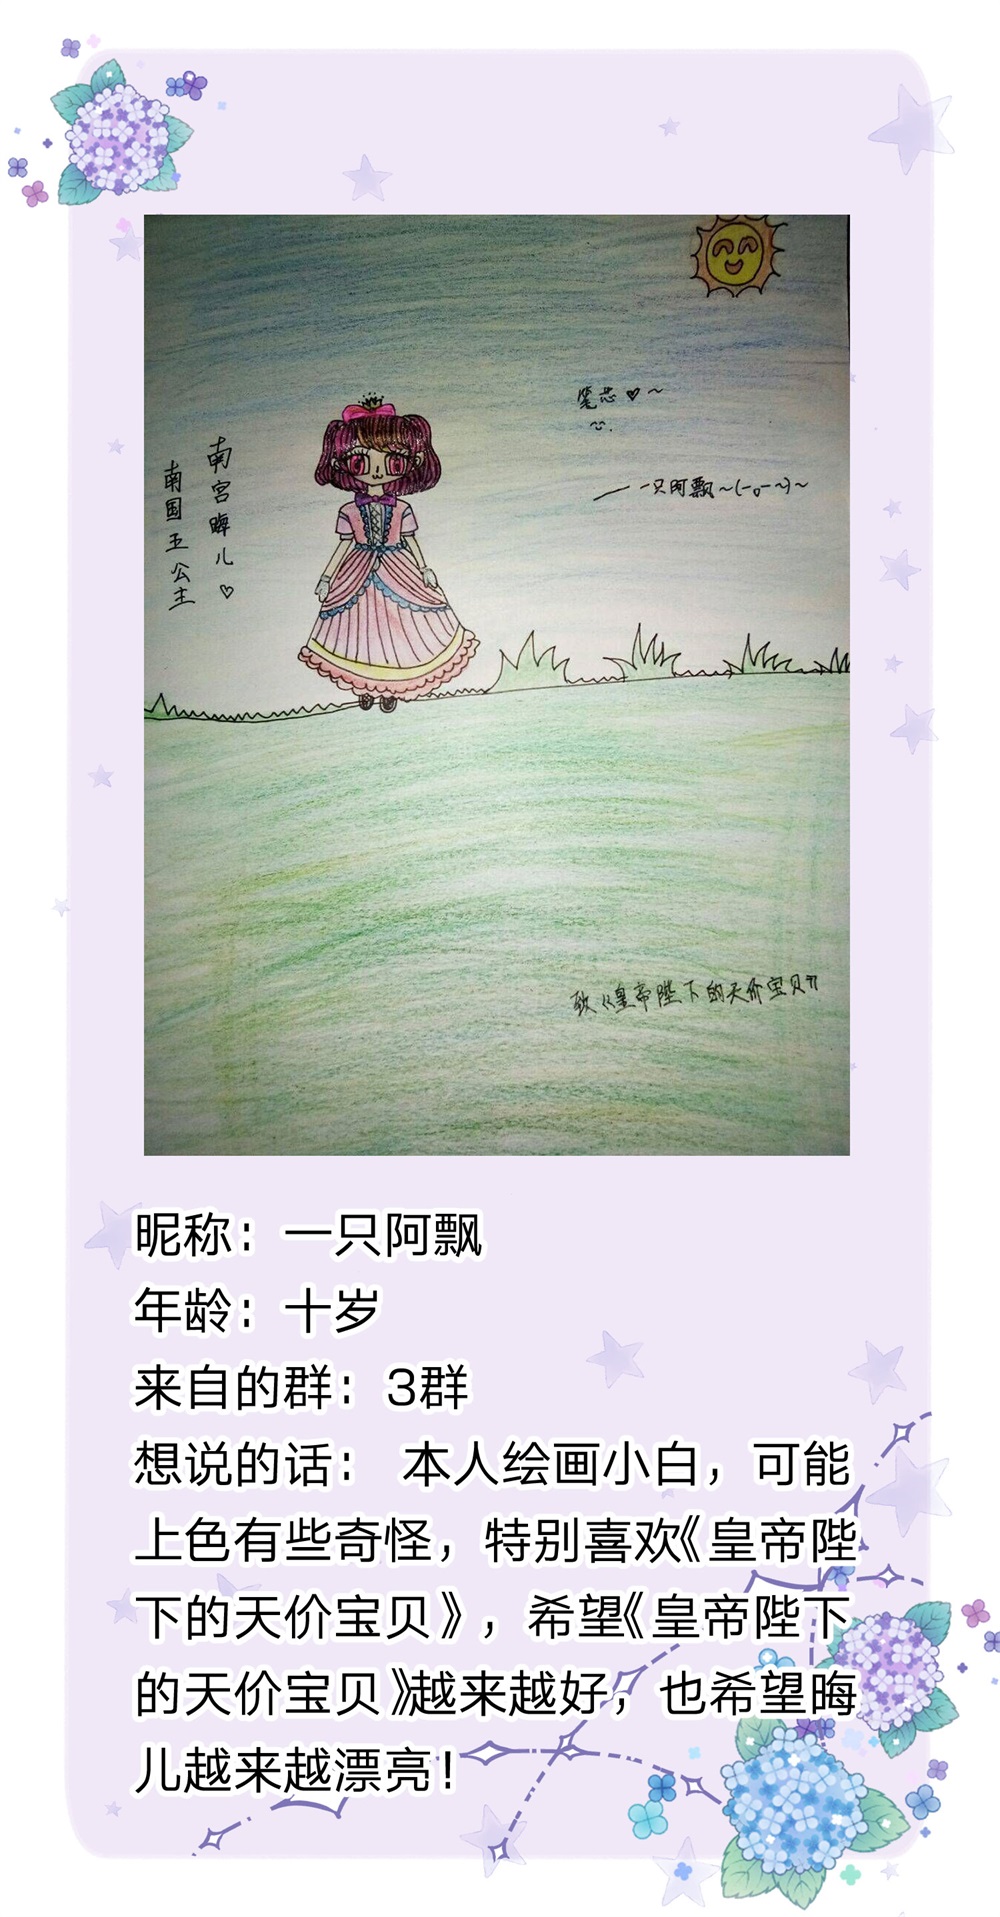 笔芯♡~
一只阿飘~(-。-~)~
南宫晦儿♡
南国五公主
致《皇帝陛下的天价宝贝》
昵称：一只阿飘
年龄：十岁
来自的群：3群
想说的话： 本人绘画小白，可能
上色有些奇怪，特别喜欢《皇帝陛
下的天价宝贝》，希望《皇帝陛下
的天价宝贝》越来越好，也希望晦
儿越来越漂亮！